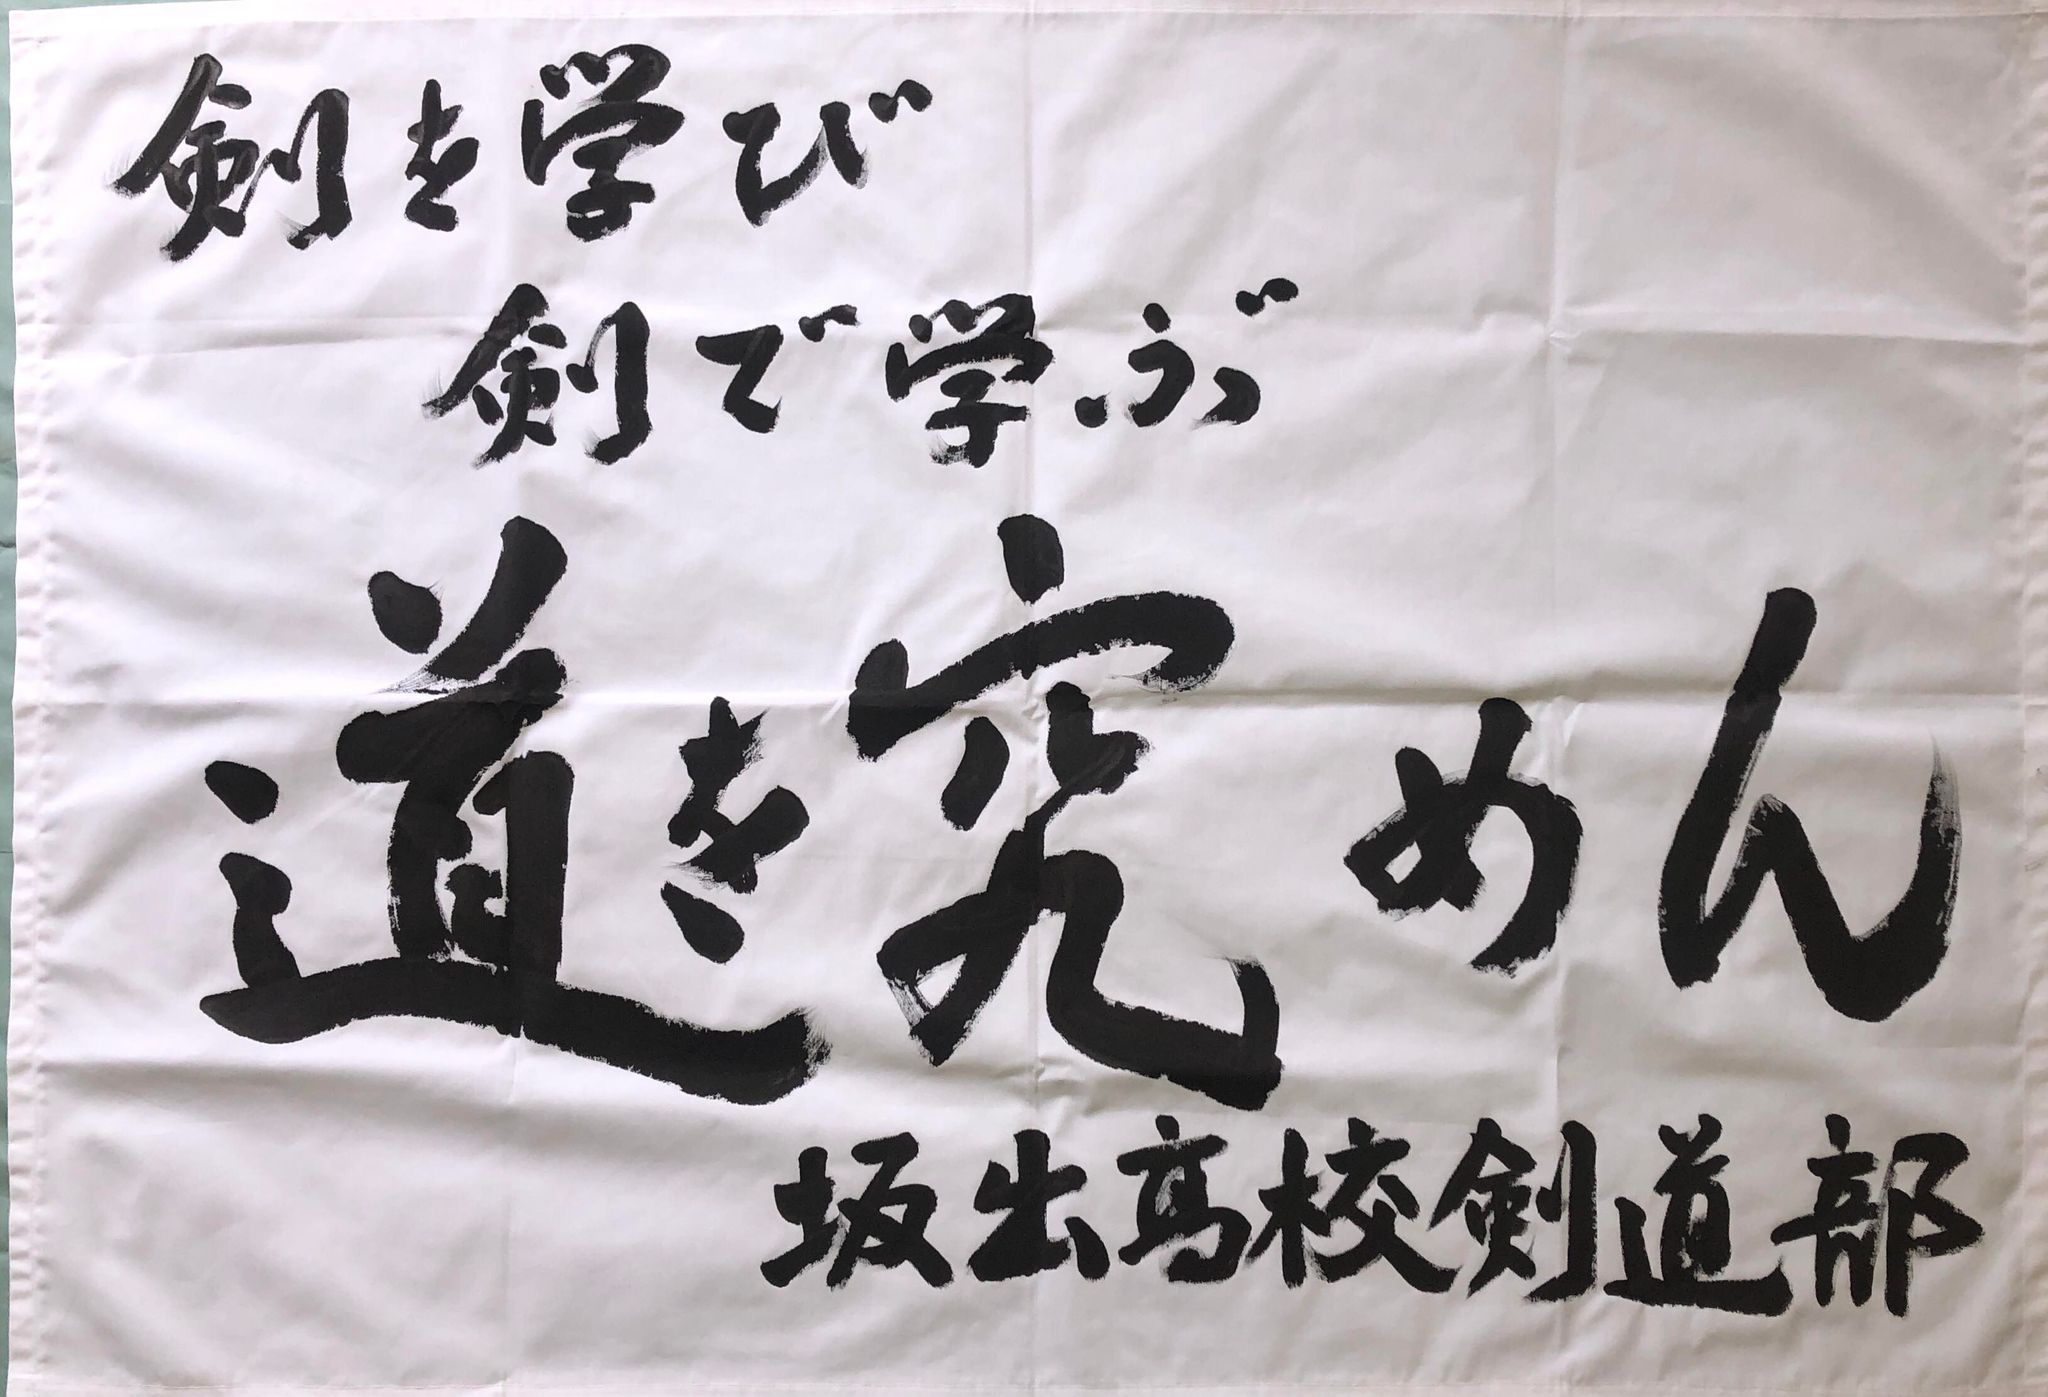 剣を学び
剣で学ぶ
道を究めん
坂出高校剣道部